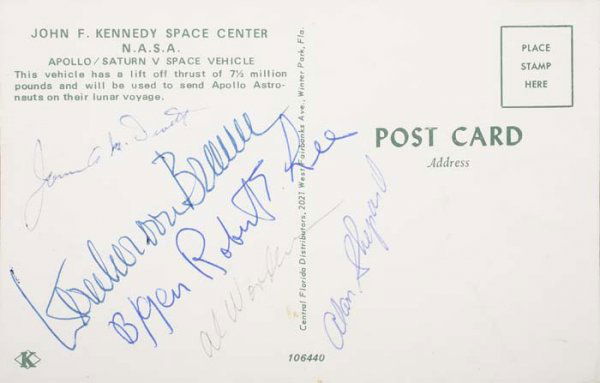 JOHN F. KENNEDY SPACE CENTER
N.A.S.A.
APOLLO/SATURN V SPACE VEHICLE
This vehicle has a lift off thrust of 7½ million
pounds and will be used to send Apollo Astro-
nauts on their lunar voyage.
PLACE
STAMP
HERE
POST CARD
Address
Central Florida Distributors, 2021 West Fairbanks Ave., Winter Park, Fla.
Wernher von Braun
B/Gen Robert F. Lee
Al Worden
Alan Shepard
K
106440